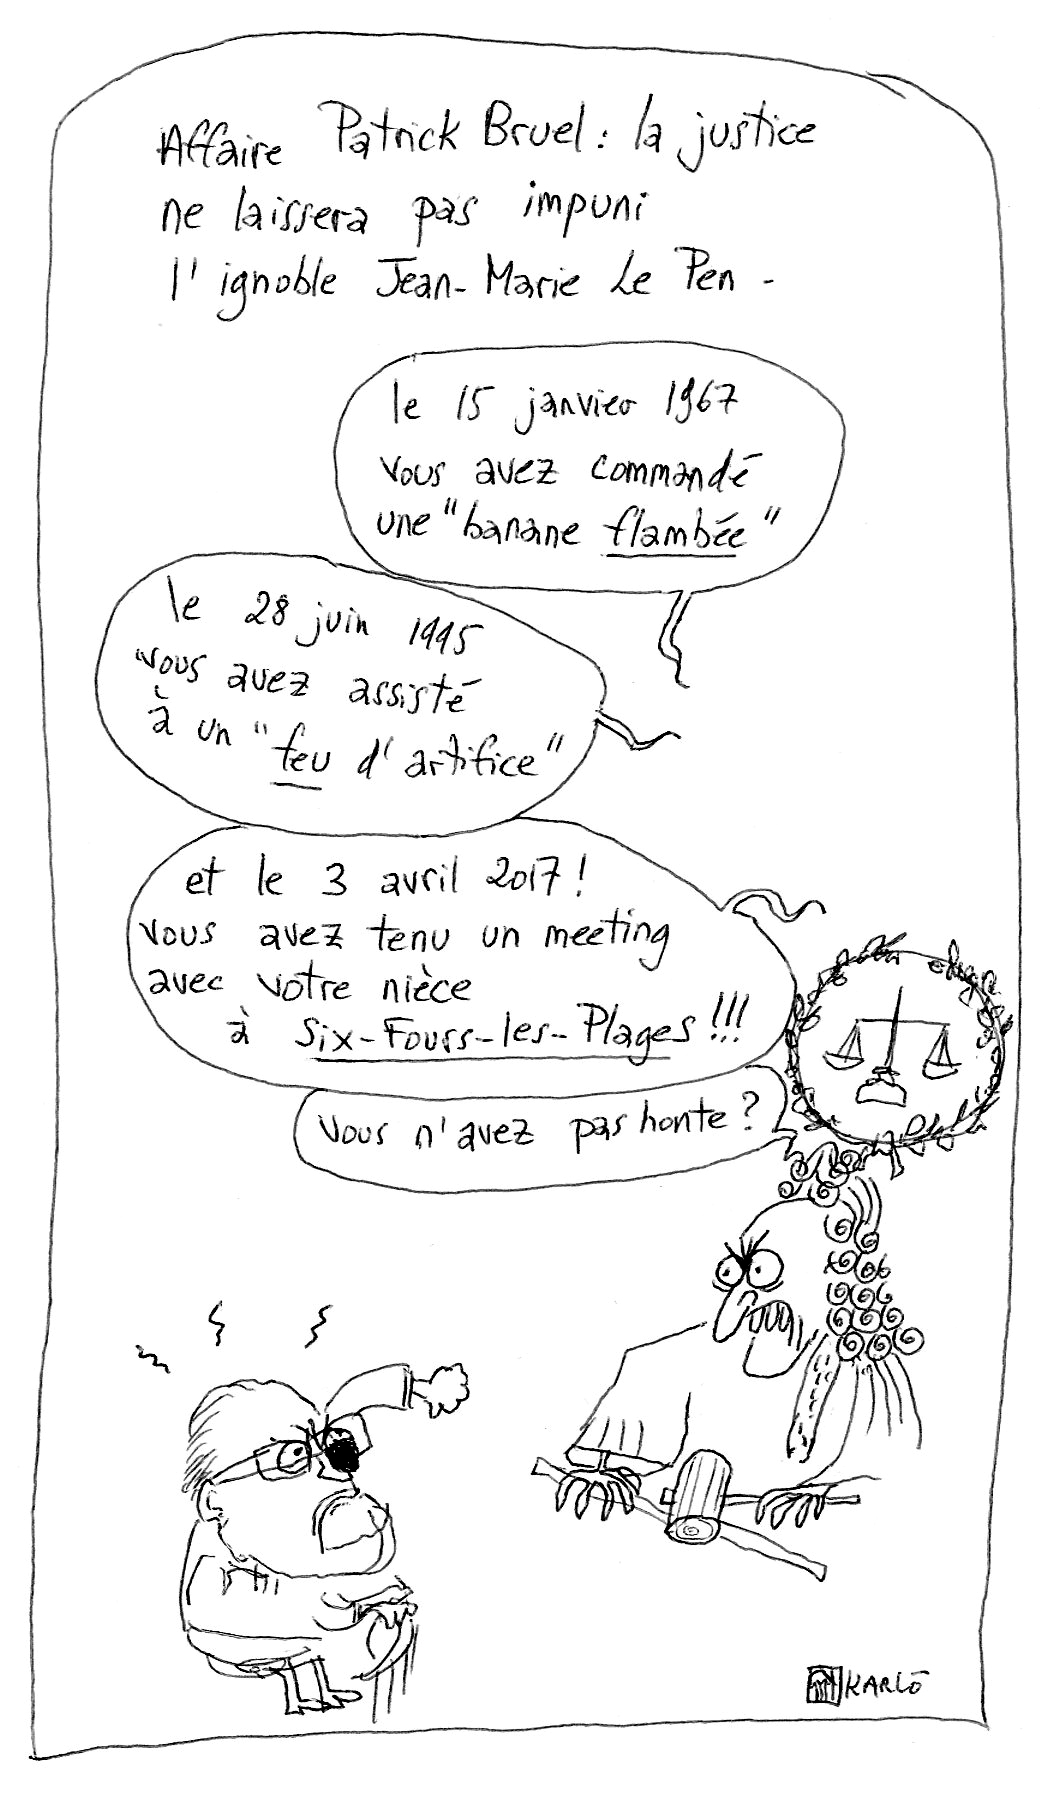 Affaire Patrick Bruel : la justice
ne laissera pas impuni
l'ignoble Jean-Marie Le Pen -
le 15 janvier 1967
vous avez commandé
une "banane flambée"
le 28 juin 1995
vous avez assisté
à un "feu d'artifice"
et le 3 avril 2017 !
vous avez tenu un meeting
avec votre nièce
à Six-Fours-les-Plages !!!
vous n'avez pas honte ?
KARLO